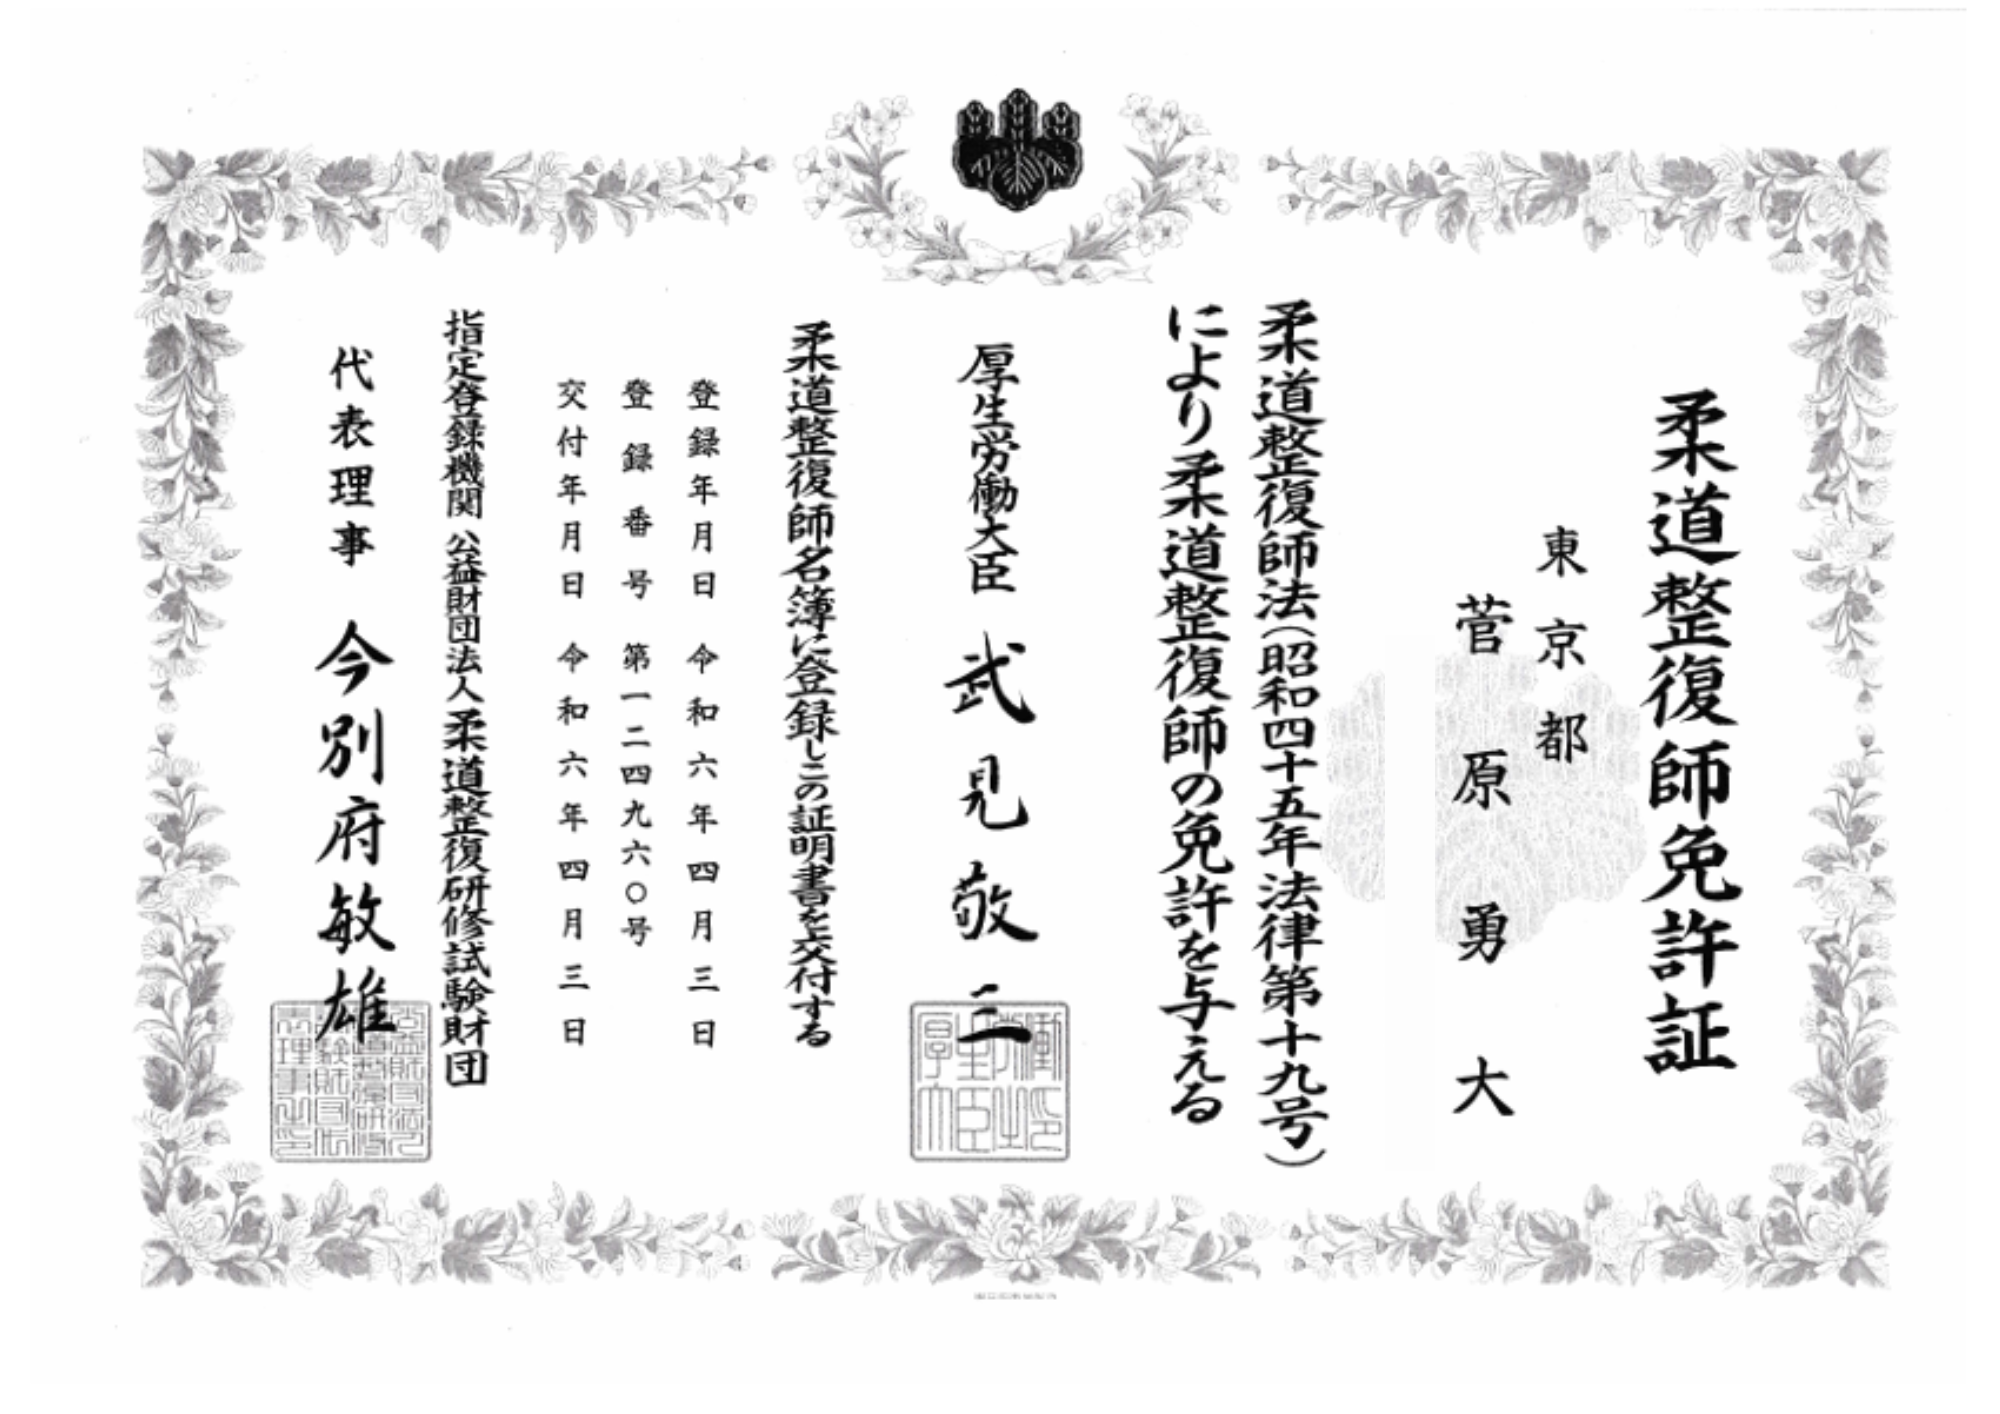 柔道整復師免許証
東京都
菅原勇大
柔道整復師法（昭和四十五年法律第十九号）
により柔道整復師の免許を与える
厚生労働大臣 武見敬三
柔道整復師名簿に登録しこの証明書を交付する
登録年月日 令和六年四月三日
登録番号 第一二四九六〇号
交付年月日 令和六年四月三日
指定登録機関 公益財団法人柔道整復研修試験財団
代表理事 今別府敏雄